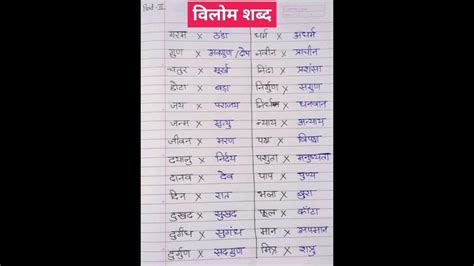 विलोम शब्द
गरम × ठंडा धर्म × अधर्म
गुण × अवगुण / दोष नवीन × प्राचीन
चतुर × मूर्ख निंदा × प्रशंसा
छोटा × बड़ा निर्गुण × सगुण
जय × पराजय निर्धन × धनवान
जन्म × मृत्यु न्याय × अन्याय
जीवन × मरण पक्ष × विपक्ष
दयालु × निर्दय पशुता × मनुष्यता
दानव × देव पाप × पुण्य
दिन × रात भला × बुरा
दुखद × सुखद फूल × काँटा
दुर्गंध × सुगंध मान × अपमान
दुर्गुण × सद्गुण मित्र × शत्रु